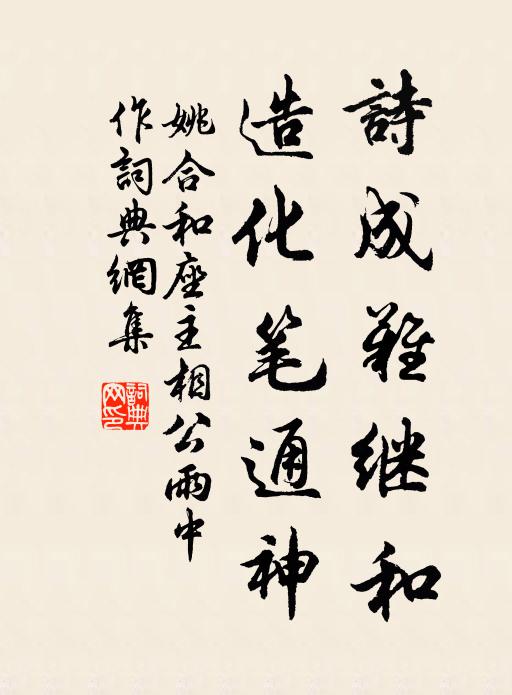 詩成難继和
造化笔通神
姚合和座主相公雨中
作詞典網集
詞典
网印